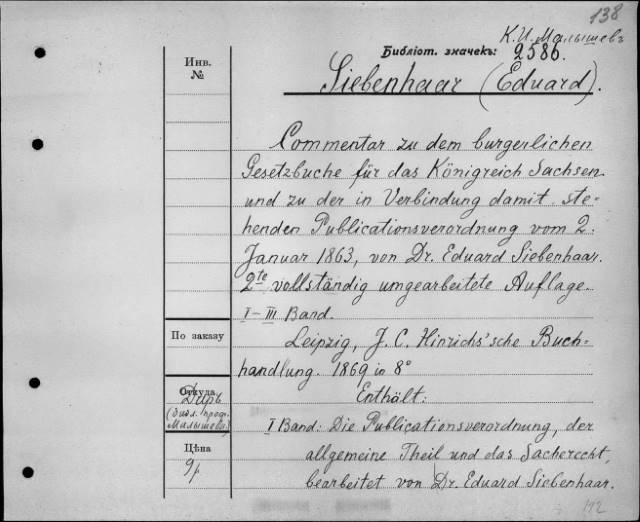 138
К. И. Малышевъ
Библіот. значекъ: 2586.
Siebenhaar (Eduard).
Инв.
№
Commentar zu dem burgerlichen
Gesetzbuche für das Königreich Sachsen
und zu der in Verbindung damit ste-
henden Publicationsverordnung vom 2.
Januar 1863, von Dr. Eduard Siebenhaar.
2te vollständig umgearbeitete Auflage.
I-III Band.
По заказу
Leipzig, J. C. Hinrichs'sche Buch-
handlung. 1869 in 8°
Откуда
Даръ
(библ. проф.
Малышева)
Enthält:
I Band: Die Publicationsverordnung, der
allgemeine Theil und das Sachenrecht,
bearbeitet von Dr. Eduard Siebenhaar.
Цѣна
9р